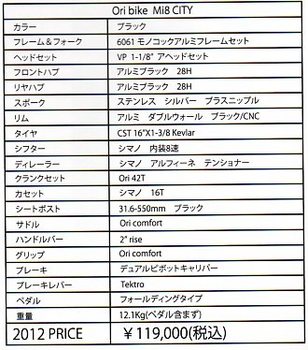 Ori bike Mi8 CITY
カラー ブラック
フレーム＆フォーク 6061 モノコックアルミフレームセット
ヘッドセット VP 1-1/8" アヘッドセット
フロントハブ アルミブラック 28H
リヤハブ アルミブラック 28H
スポーク ステンレス シルバー プラスニップル
リム アルミ ダブルウォール ブラック/CNC
タイヤ CST 16"X1-3/8 Kevlar
シフター シマノ 内装8速
ディレーラー シマノ アルフィーネ テンショナー
クランクセット Ori 42T
カセット シマノ 16T
シートポスト 31.6-550mm ブラック
サドル Ori comfort
ハンドルバー 2" rise
グリップ Ori comfort
ブレーキ デュアルピボットキャリパー
ブレーキレバー Tektro
ペダル フォールディングタイプ
重量 12.1Kg(ペダル含まず)
2012 PRICE ￥119,000(税込)